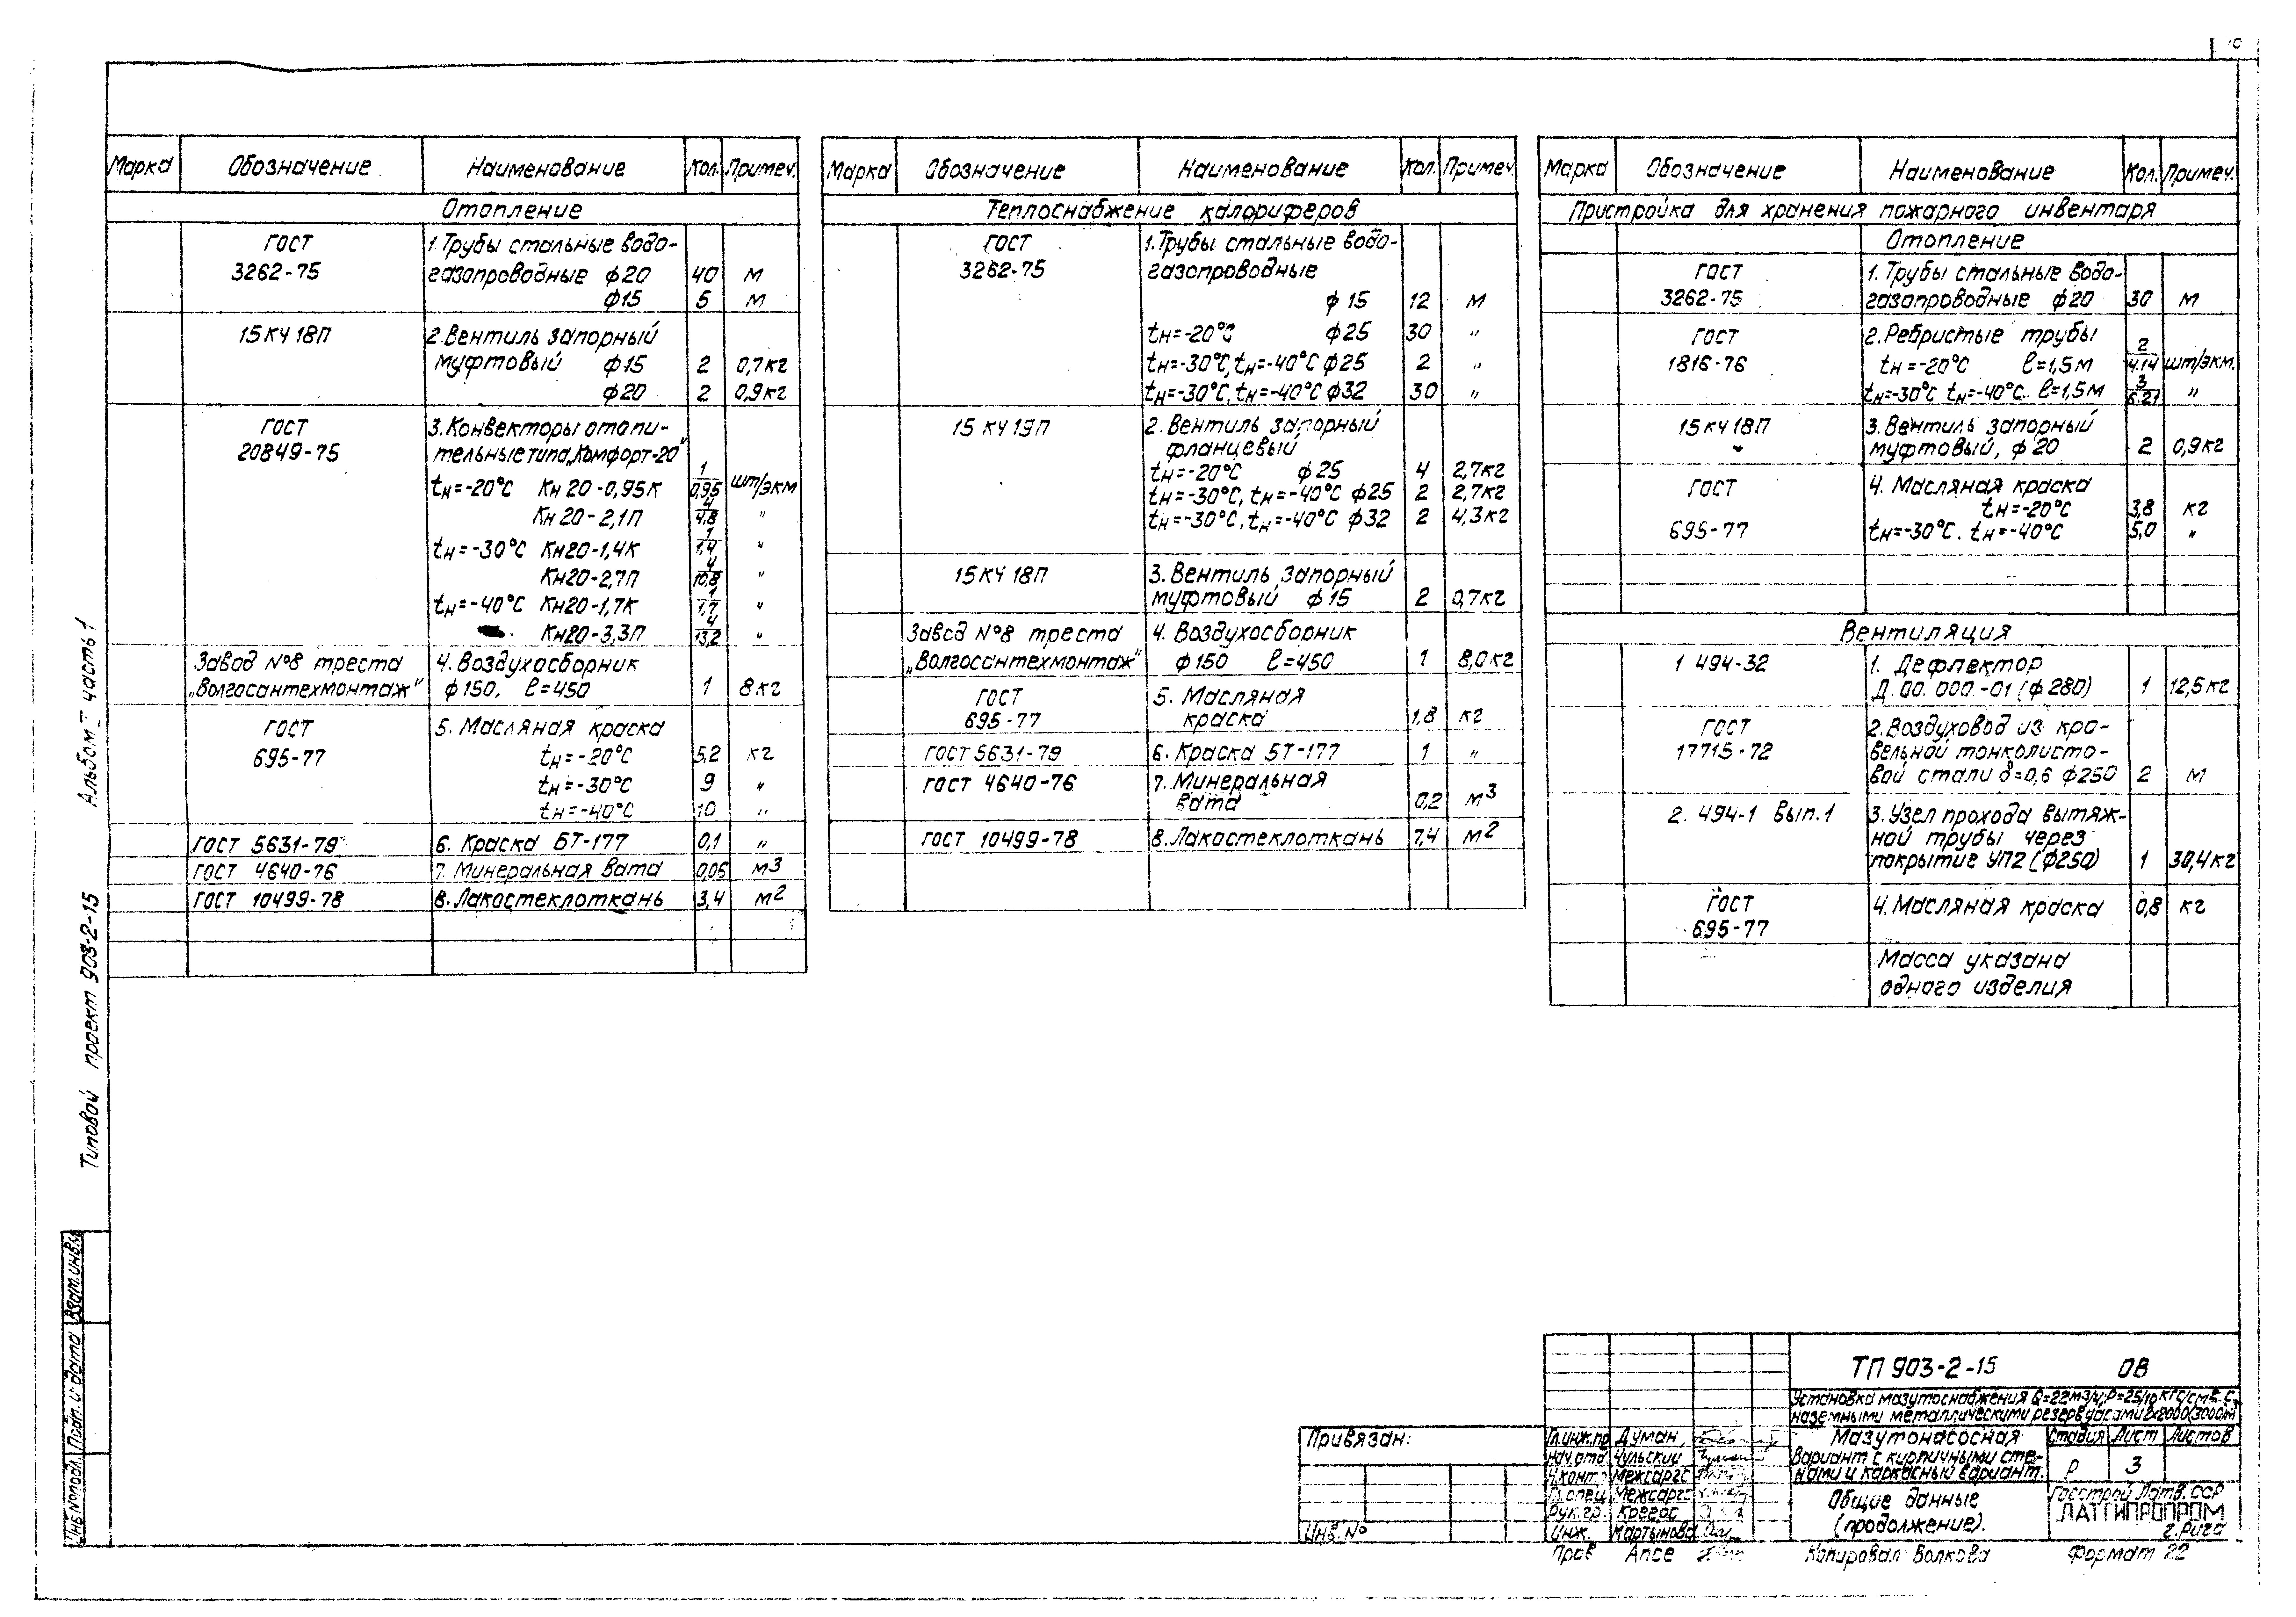 10
Марка Обозначение Наименование Кол. Примеч.
Отопление
ГОСТ 1. Трубы стальные водо-
3262-75 газопроводные ф20 40 м
ф15 5 м
15 кч 18п 2. Вентиль запорный
муфтовый ф15 2 0,7кг
ф20 2 0,9кг
ГОСТ 3. Конвекторы отопи-
20849-75 тельные типа „Комфорт-20"
tн=-20°С Кн 20-0,95К 1/0,95 шт/экм
Кн 20-2,1П 4/4,8 "
tн=-30°С Кн20-1,4К 1/1,4 "
Кн20-2,7П 4/10,8 "
tн=-40°С Кн20-1,7К 1/1,7 "
Кн20-3,3П 4/13,2 "
Завод №8 треста 4. Воздухосборник
„Волгосантехмонтаж" ф150, ℓ=450 1 8кг
ГОСТ 5. Масляная краска
695-77 tн=-20°С 5,2 кг
tн=-30°С 9 "
tн=-40°С 10 "
ГОСТ 5631-79 6. Краска БТ-177 0,1 "
ГОСТ 4640-76 7. Минеральная вата 0,05 м3
ГОСТ 10499-78 8. Лакостеклоткань 3,4 м2
Марка Обозначение Наименование Кол. Примеч.
Теплоснабжение калориферов
ГОСТ 1. Трубы стальные водо-
3262-75 газопроводные
ф 15 12 м
tн=-20°С ф25 30 "
tн=-30°С, tн=-40°С ф25 2 "
tн=-30°С, tн=-40°С ф32 30 "
15 кч 19п 2. Вентиль запорный
фланцевый
tн=-20°С ф25 4 2,7кг
tн=-30°С, tн=-40°С ф25 2 2,7кг
tн=-30°С, tн=-40°С ф32 2 4,3кг
15 кч 18п 3. Вентиль запорный
муфтовый ф15 2 0,7кг
Завод №8 треста 4. Воздухосборник
„Волгосантехмонтаж" ф150 ℓ=450 1 8,0кг
ГОСТ 5. Масляная
695-77 краска 1,8 кг
ГОСТ 5631-79 6. Краска БТ-177 1 "
ГОСТ 4640-76 7. Минеральная
вата 0,2 м3
ГОСТ 10499-78 8. Лакостеклоткань 7,4 м2
Марка Обозначение Наименование Кол. Примеч.
Пристройка для хранения пожарного инвентаря
Отопление
ГОСТ 1. Трубы стальные водо-
3262-75 газопроводные ф20 30 м
ГОСТ 2. Ребристые трубы
1816-76 tн=-20°С ℓ=1,5м 2/4.14 шт/экм.
tн=-30°С tн=-40°С. ℓ=1,5м 3/6.21 "
15 кч 18п 3. Вентиль запорный
муфтовый, ф20 2 0,9кг
ГОСТ 4. Масляная краска
tн=-20°С 3,8 кг
695-77 tн=-30°С. tн=-40°С 5,0 "
Вентиляция
1 494-32 1. Дефлектор
Д.00.000.-01 (ф280) 1 12,5кг
ГОСТ 2. Воздуховод из кро-
17715-72 вельной тонколисто-
вой стали δ=0,6 ф250 2 м
2. 494-1 Вып.1 3. Узел прохода вытяж-
ной трубы через
покрытие УП2 (ф250) 1 30,4кг
ГОСТ 4. Масляная краска 0,8 кг
695-77
Масса указана
одного изделия
Альбом I часть 1
Типовой проект 903-2-15
Взам.инв.
Подп. и дата
Инв.№подл.
Привязан:
Инв.№
ТП 903-2-15 ОВ
Установка мазутоснабжения Q=22м3/ч; Р=25/10 кгс/см2 с
наземными металлическими резервуарами 2х2000(3000)м3
Мазутонасосная Стадия Лист Листов
Вариант с кирпичными сте-
нами и каркасный вариант. Р 3
Общие данные
(продолжение).
Госстрой Латв. ССР
ЛАТГИПРОПРОМ
г.Рига
Гл.инж.пр Думан
Нач.отд. Чульский
Н.конт. Межсаргс
Гл.спец. Межсаргс
Рук.гр. Креерс
Инж. Мартынова
Пров Апсе
Копировал: Волкова Формат 22